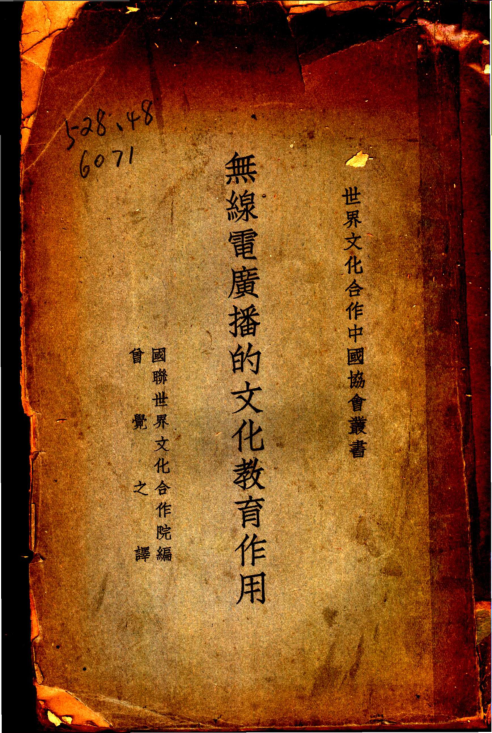 528.48
6071
世界文化合作中國協會叢書
無線電廣播的文化教育作用
國聯世界文化合作院編
曾覺之譯